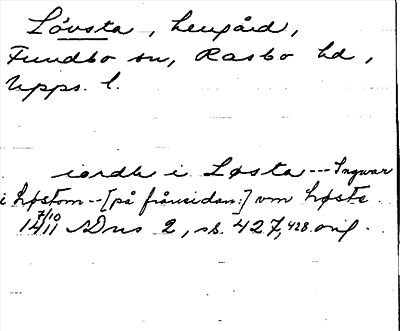 Lövsta, herrgård,
Funbo sn, Rasbo hd,
Upps. l.
iordh i Løsta --- Ingwar
i Løstom -- [på frånsidan:] vm Løste
7/10
1411 SDns 2, s. 427, 428. orig.